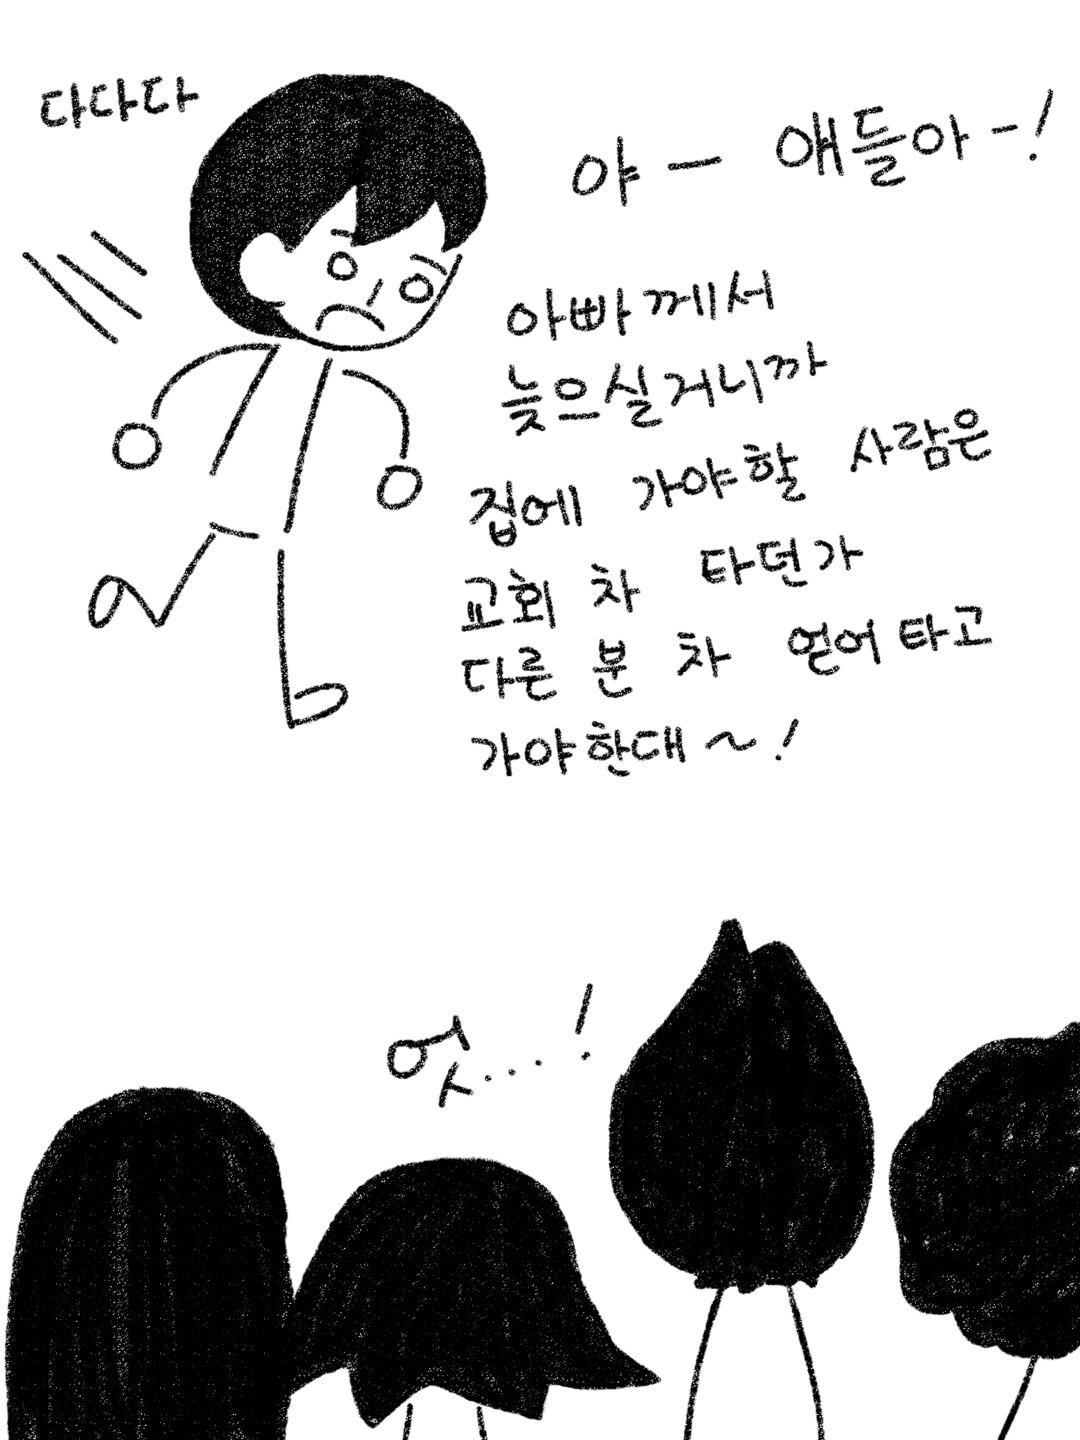 다다다
야 - 얘들아 - !
아빠께서
늦으실거니까
집에 가야할 사람은
교회 차 타던가
다른 분 차 얻어 타고
가야한대 ~ !
엇...!